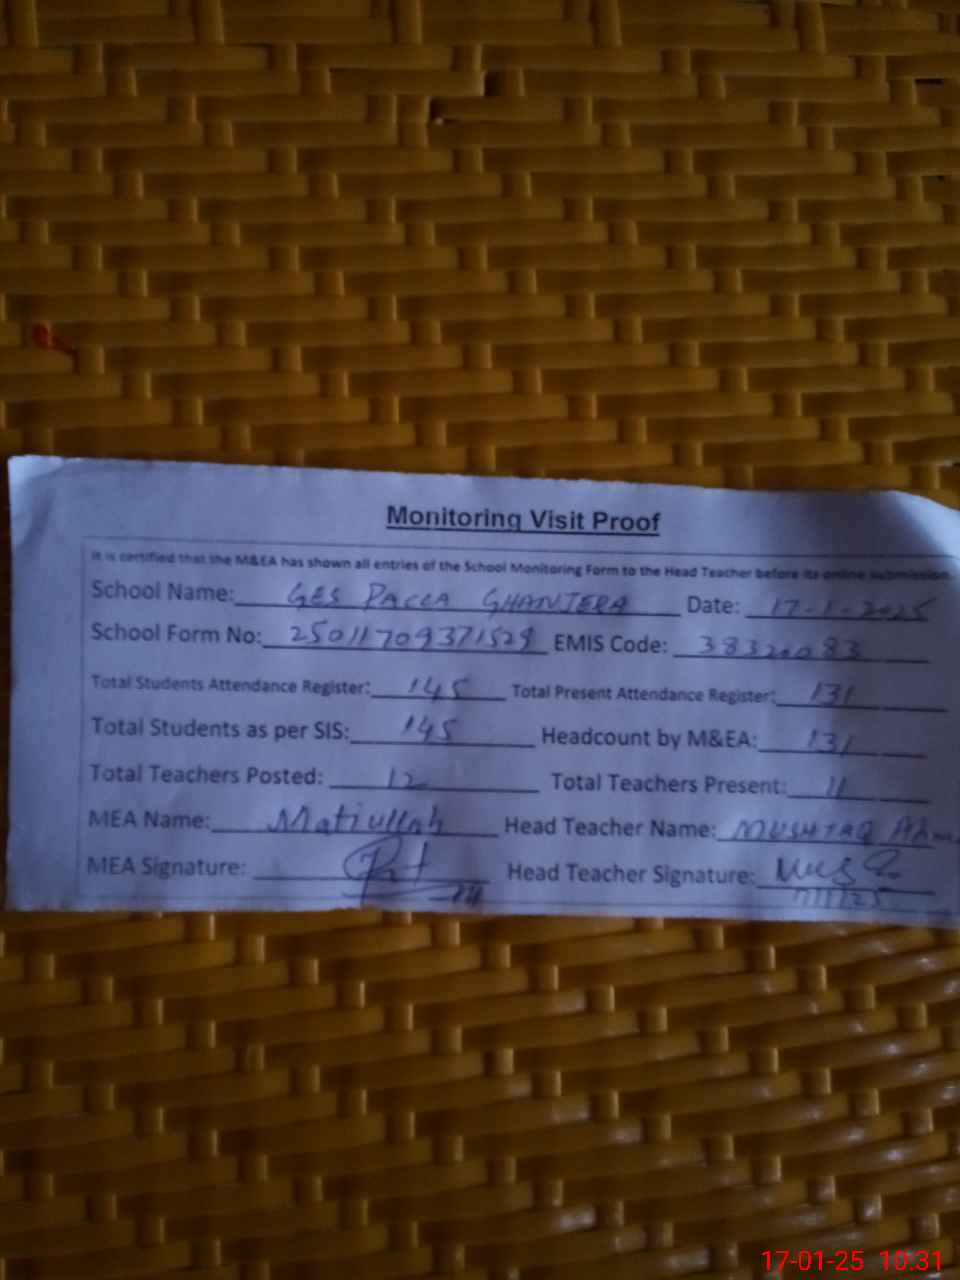 Monitoring Visit Proof
It is certified that the M&EA has shown all entries of the School Monitoring Form to the Head Teacher before its online submission.
School Name: GES PACCA GHANJERA Date: 17-1-2025
School Form No: 25011709371529 EMIS Code: 38320083
Total Students Attendance Register: 145 Total Present Attendance Register: 131
Total Students as per SIS: 145 Headcount by M&EA: 131
Total Teachers Posted: 12 Total Teachers Present: 11
MEA Name: Matiullah Head Teacher Name: MUSHTAQ
MEA Signature: Head Teacher Signature:
17-01-25 10:31